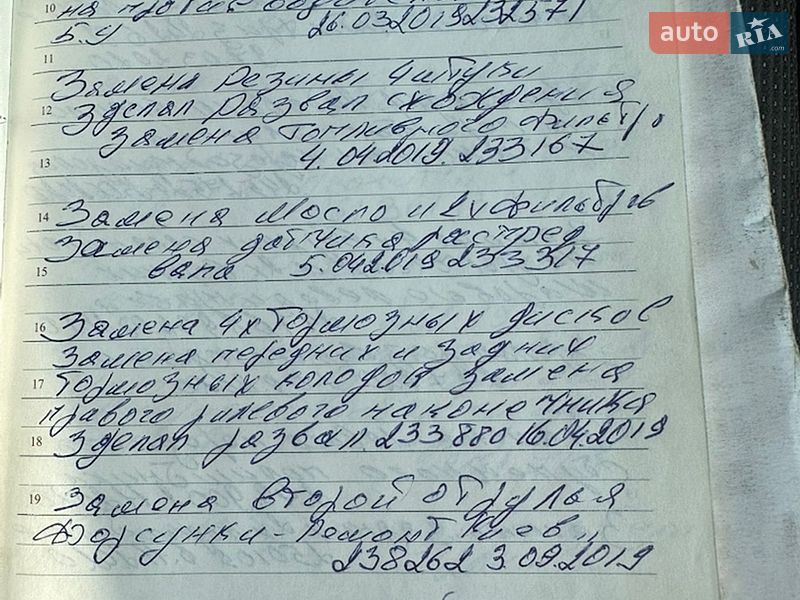 10
на
Б.У 26.03.2019 232571
11
Замена резины 4 штуки
12
Зделал развал схождения
Замена топливного фильтра
13
4.04.2019. 233167
14
Замена Масло и 2х фильтров
Замена датчика распред
15
вала 5.04.2019 233317
16
Замена 4х тормозных дисков
Замена передних и задних
17
тормозных колодок замена
правого рулевого наконечника
18
Зделал развал. 233880 16.04.2019
19
Замена второй от рулья
Форсунки - Ремонт Киев
238262 3.09.2019
auto RIA
.com